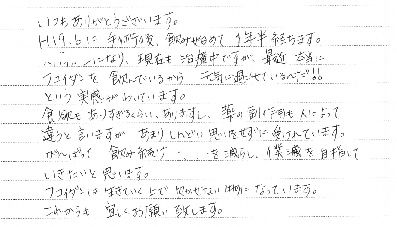 いつもありがとうございます。
H19.6に手術後、飲み始めて1年半経ちます。
になり、現在も治療中ですが、最近 本当に
フコイダンを飲んでいるから 元気に過せているんだ!!
という実感がわいています。
食欲もありすぎるくらい、ありますし、薬の副作用も人によって
違うと言いますが あまりしんどいと思わせずに
がんばって 飲み続け を減らし、1錠減を目指して
いきたいと思います。
フコイダンは生きていく上で 欠かせない物になっています。
これからも 宜しくお願い致します。